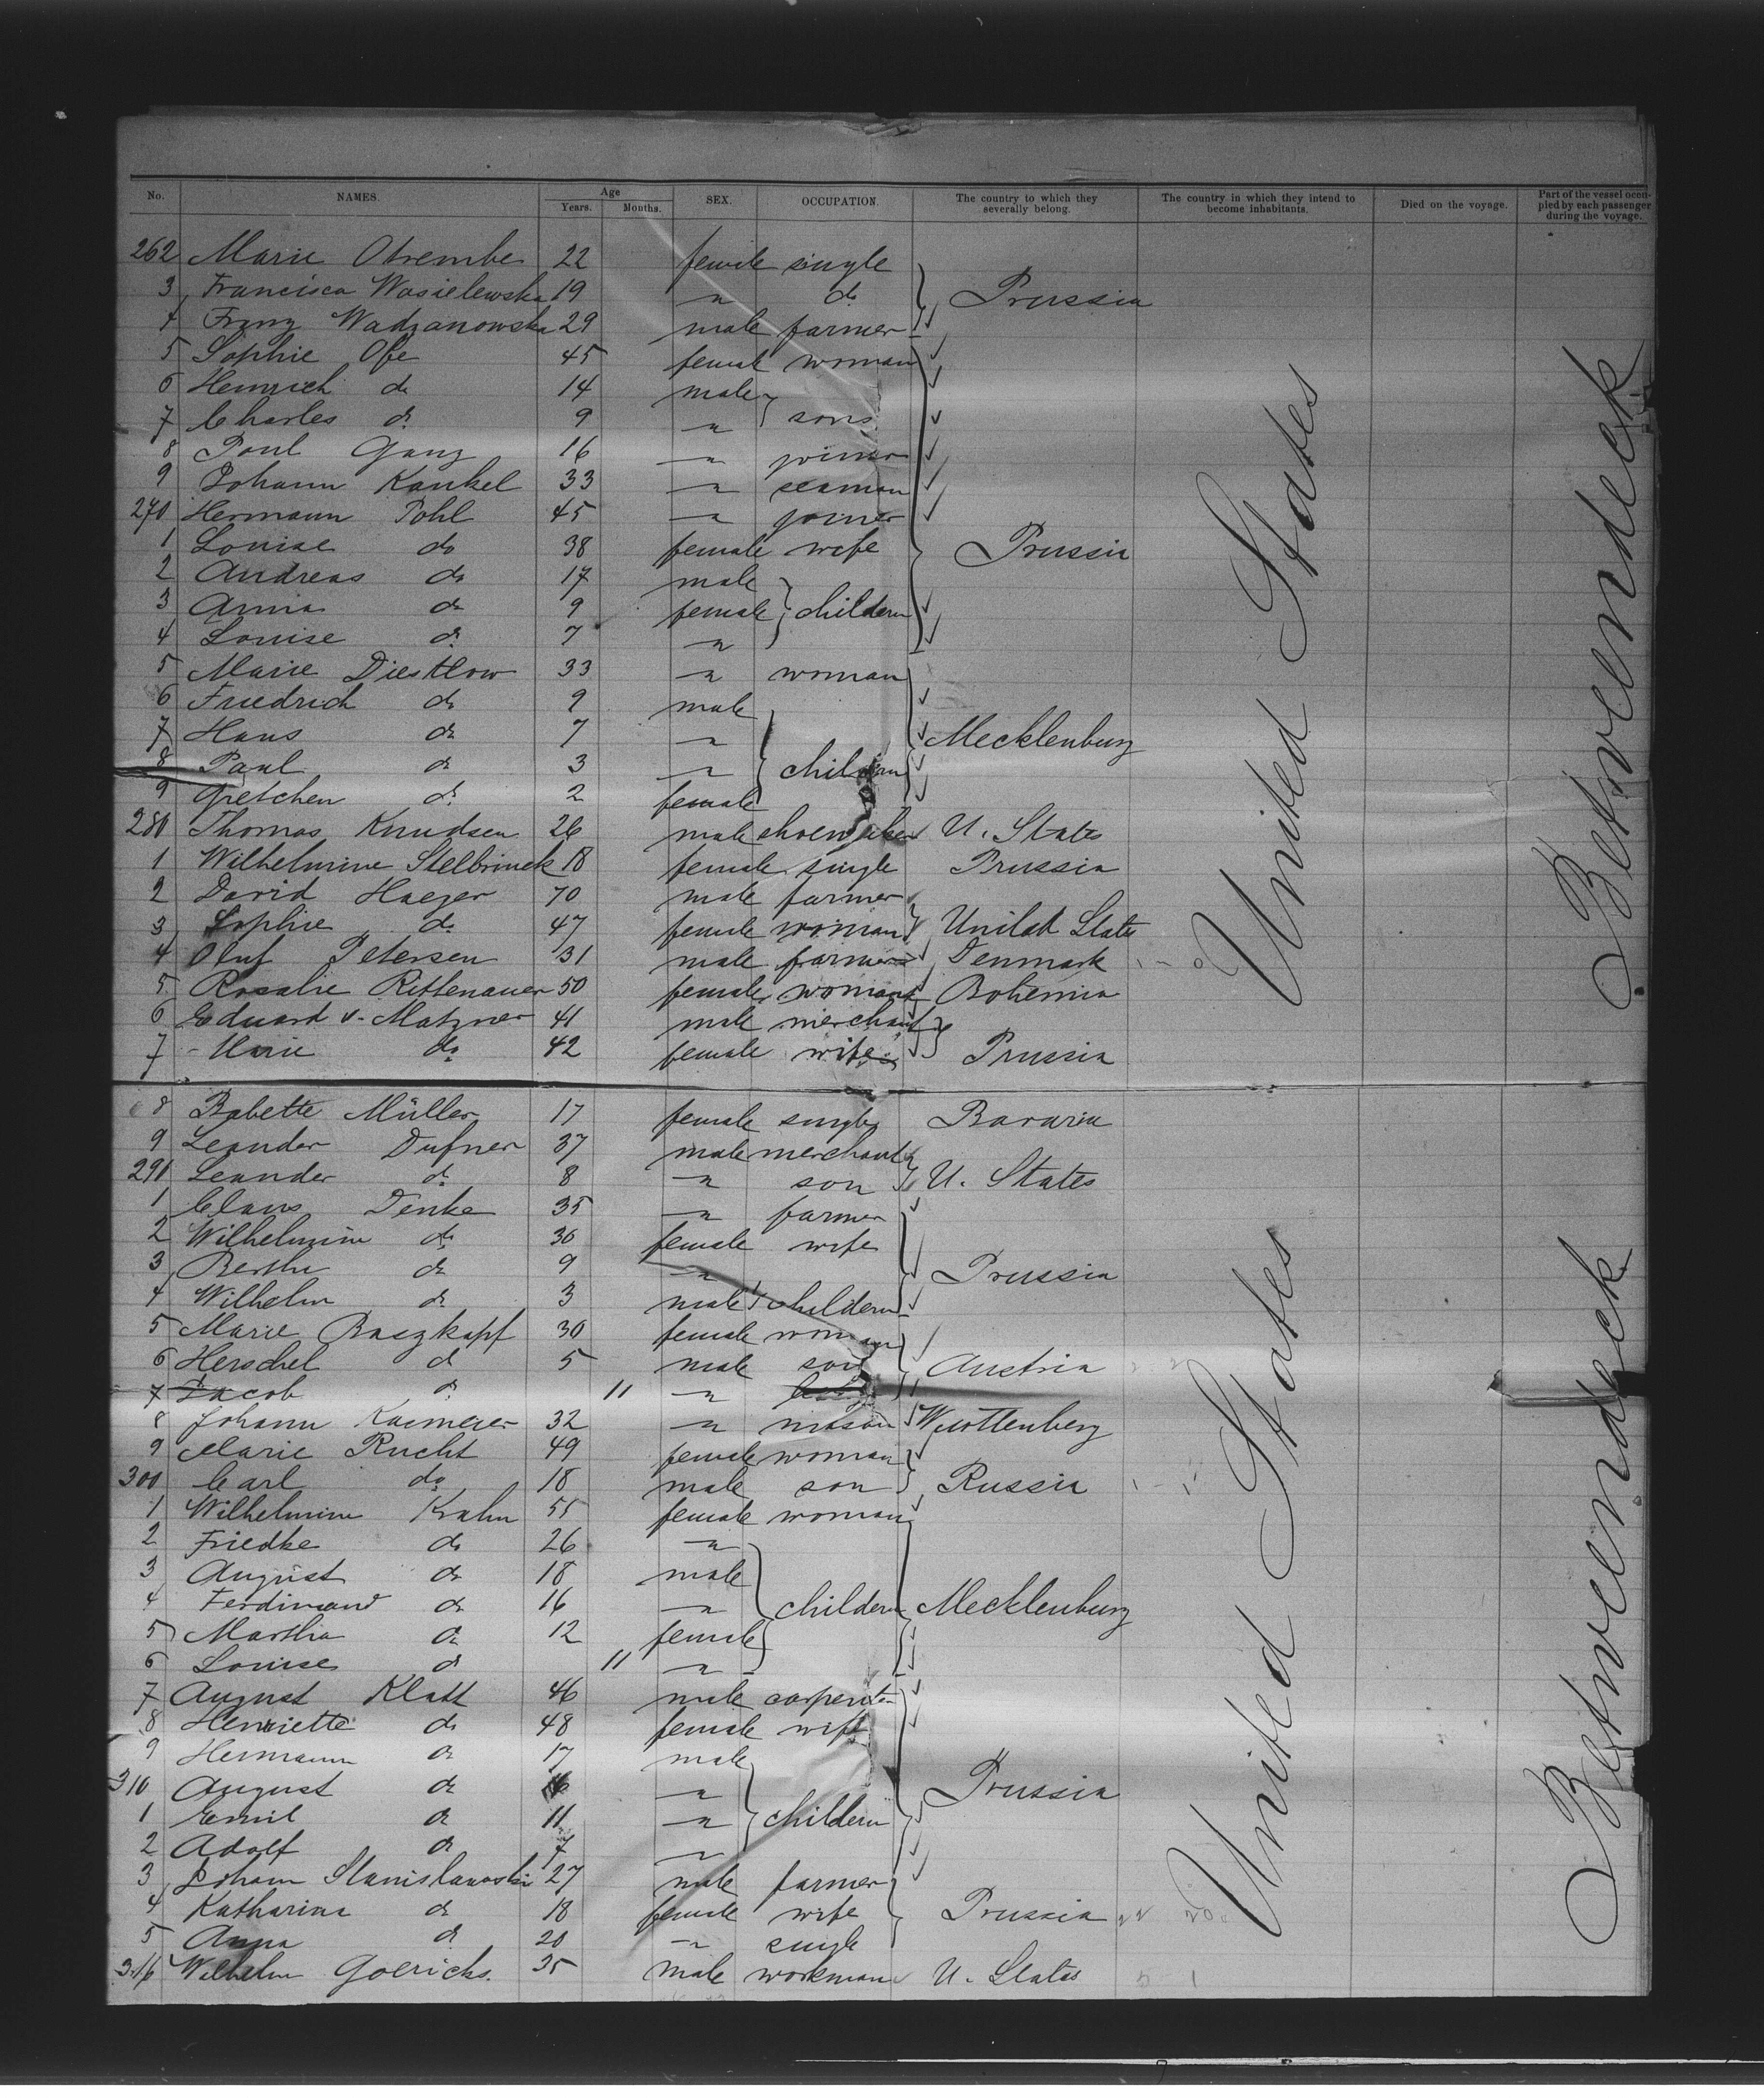 No. NAMES. Age Years. Months. SEX. OCCUPATION. The country to which they severally belong. The country in which they intend to become inhabitants. Died on the voyage. Part of the vessel occupied by each passenger during the voyage.
262 Marie Otrembe 22 female single
3 Francisca Wasielewska 19 " do Prussia
4 Franz Wadzanowska 29 male farmer
5 Sophie Ofe 45 female woman
6 Heinrich do 14 male
7 Charles do 9 " sons
8 Paul Ganz 16 " joiner
9 Johann Kankel 33 " seaman
270 Hermann Pohl 45 " joiner
1 Louise do 38 female wife Prussia
2 Andreas do 17 male
3 Anna do 9 female childern
4 Louise do 7 "
5 Marie Diestlow 33 " woman
6 Friedrich do 9 male
7 Hans do 7 " Mecklenburg
8 Paul do 3 " childern
9 Gretchen do 2 female
280 Thomas Knudsen 26 male shoemaker U. States
1 Wilhelmine Stelbrinck 18 female single Prussia
2 David Haeger 70 male farmer
3 Sophie do 47 female woman United States
4 Oluf Petersen 31 male farmer Denmark
5 Rosalie Rittenauer 50 female woman Bohemia
6 Eduard v. Matzner 41 male merchant
7 Marie do 42 female wife Prussia
United States
Betweendeck
8 Babette Müller 17 female single Bavaria
9 Leander Dufner 37 male merchant
290 Leander do 8 " son U. States
1 Claus Denke 35 " farmer
2 Wilhelmine do 36 female wife
3 Bertha do 9 " Prussia
4 Wilhelm do 3 male childern
5 Marie Baszkapf 30 female woman
6 Herschel do 5 male son Austria
7 Jacob do 11 "
8 Johann Kaemeyer 32 " mason Wurttenberg
9 Marie Rucht 49 female woman
300 Carl do 18 male son Russia
1 Wilhelmine Krahn 55 female woman
2 Friedke do 26 "
3 August do 18 male
4 Ferdinand do 16 " childern Mecklenburg
5 Martha do 12 female
6 Louise do 11 "
7 August Klatt 46 male carpenter
8 Henriette do 48 female wife
9 Hermann do 17 male
310 August do " Prussia
1 Emil do 11 " childern
2 Adolf do 7 "
3 Johann Stanislawski 27 male farmer
4 Katharina do 18 female wife Prussia
5 Anna do 20 " single
316 Wilhelm Goerichs. 35 male workman U. States
United States
Betweendeck